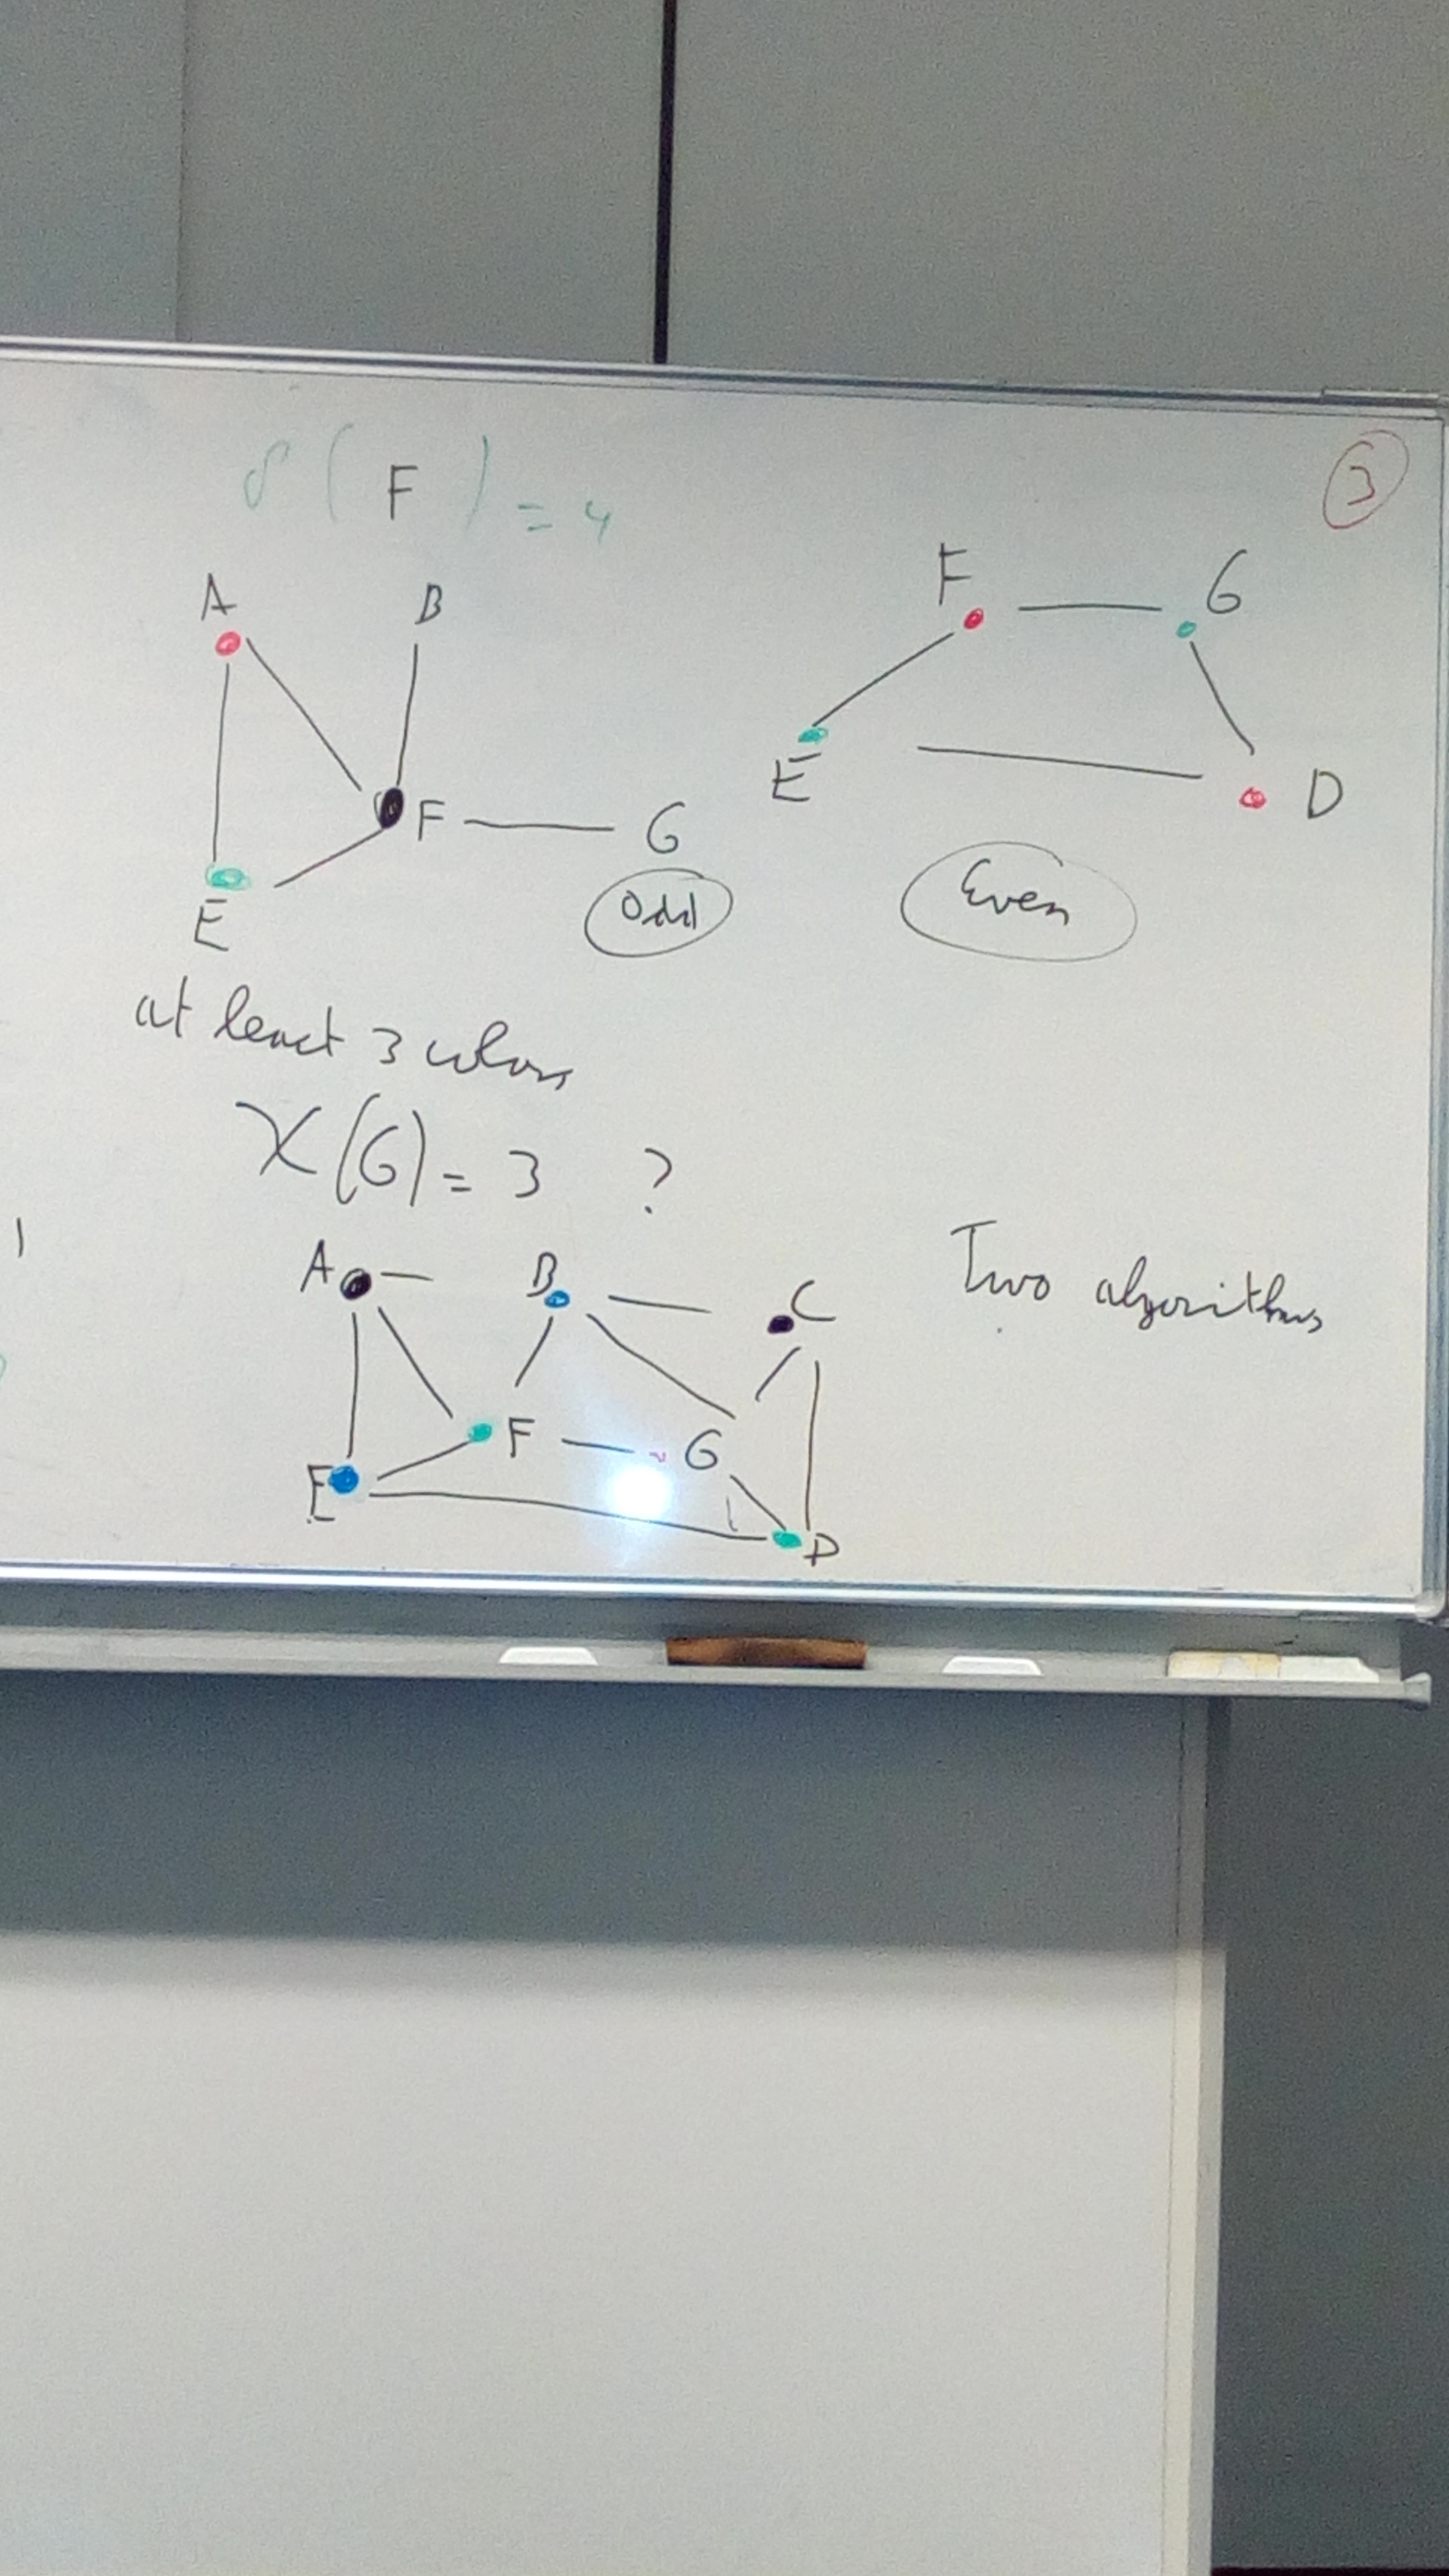 δ(F) = 4
3
A B
F G
E
Odd
F G
E D
Even
at least 3 colors
χ(G) = 3 ?
A B C
F G
E D
Two algorithms